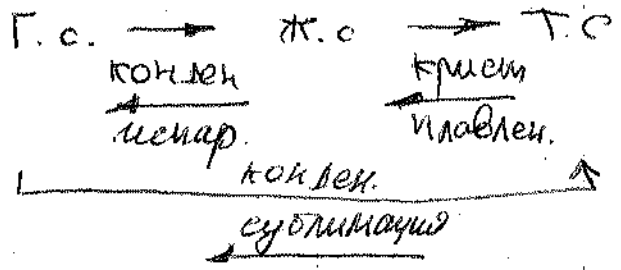 Г.с. → Ж.с → Т.С
конден крист
испар. плавлен.
конден.
сублимация